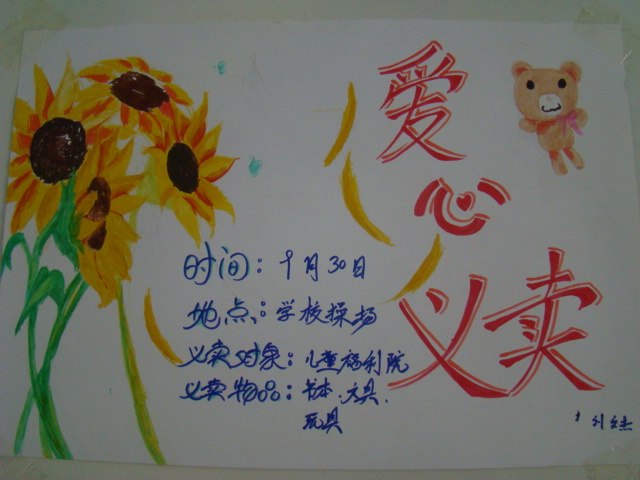 爱
心
义卖
时间：十月30日
地点：学校操场
义卖对象：儿童福利院
义卖物品：书本.文具.
玩具